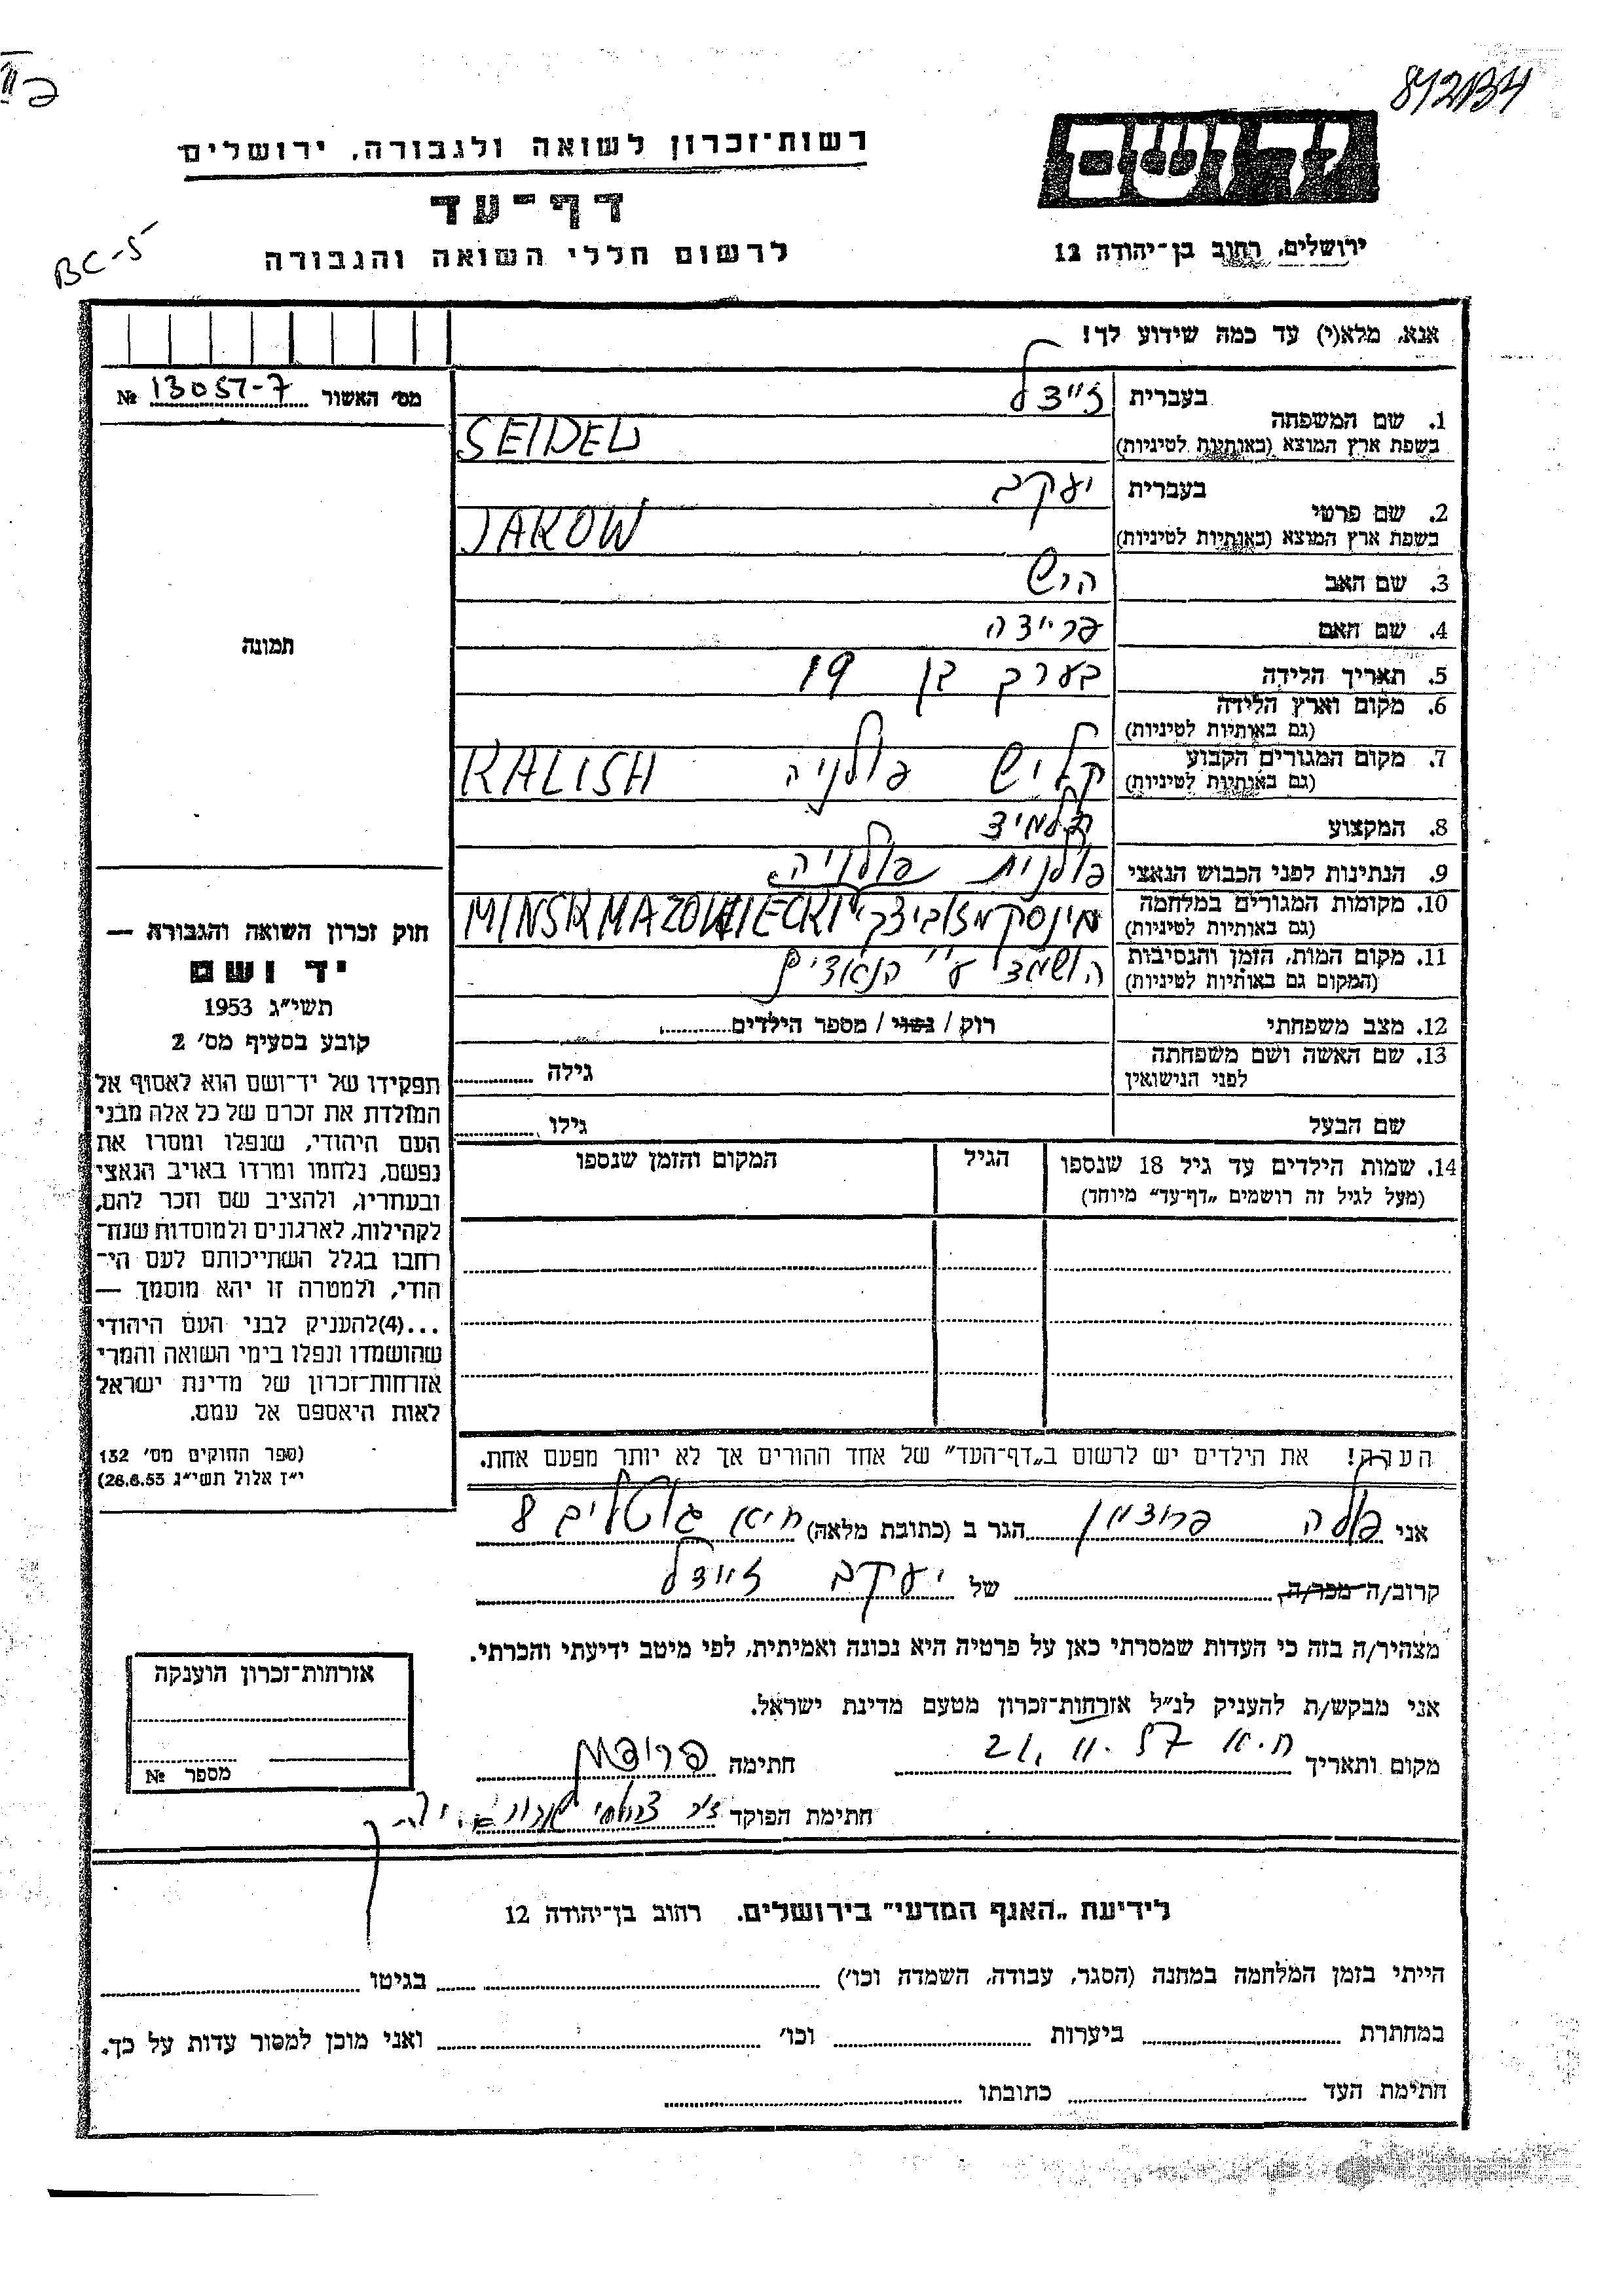 842B4
ידושם
ירושלים, רחוב בן־יהודה 12
רשות־זכרון לשואה ולגבורה, ירושלים
דף־עד
לרשום חללי השואה והגבורה
BC-5
אנא, מלא(י) עד כמה שידוע לך!
מס׳ האשור 13057-7 №
תמונה
1. שם המשפחה בעברית זיידל
בשפת ארץ המוצא (באותיות לטיניות) SEIDEL
2. שם פרטי בעברית יעקב
בשפת ארץ המוצא (באותיות לטיניות) JAKOW
3. שם האב הרש
4. שם האם פריידה
5. תאריך הלידה בערך בן 19
6. מקום וארץ הלידה
(גם באותיות לטיניות)
7. מקום המגורים הקבוע קליש פולניה KALISH
(גם באותיות לטיניות)
8. המקצוע תלמיד
9. הנתינות לפני הכבוש הנאצי פולנית פולניה
10. מקומות המגורים במלחמה מינסק מזוביצקי MINSK MAZOWIECKI
(גם באותיות לטיניות)
11. מקום המות, הזמן והנסיבות הושמד ע״י הנאצים
(המקום גם באותיות לטיניות)
12. מצב משפחתי רוק / נשוי / מספר הילדים
13. שם האשה ושם משפחתה גילה
לפני הנישואין
שם הבעל גילו
14. שמות הילדים עד גיל 18 שנספו הגיל המקום והזמן שנספו
(מעל לגיל זה רושמים „דף־עד״ מיוחד)
חוק זכרון השואה והגבורה —
יד ושם
תשי״ג 1953
קובע בסעיף מס׳ 2
תפקידו של יד־ושם הוא לאסוף אל
המולדת את זכרם של כל אלה מבני
העם היהודי, שנפלו ומסרו את
נפשם, נלחמו ומרדו באויב הנאצי
ובעוזריו, ולהציב שם וזכר להם,
לקהילות, לארגונים ולמוסדות שנח־
רבו בגלל השתייכותם לעם הי־
הודי, ולמטרה זו יהא מוסמך —
...(4)להעניק לבני העם היהודי
שהושמדו ונפלו בימי השואה והמרי
אזרחות־זכרון של מדינת ישראל
לאות היאספם אל עמם.
(ספר החוקים מס׳ 132
י״ז אלול תשי״ג 28.8.53)
הערה! את הילדים יש לרשום ב„דף־העד״ של אחד ההורים אך לא יותר מפעם אחת.
אני פולה פרוצמן הגר ב (כתובת מלאה) 8
קרוב/ה מכר/ה של יעקב זיידל
מצהיר/ה בזה כי העדות שמסרתי כאן על פרטיה היא נכונה ואמיתית, לפי מיטב ידיעתי והכרתי.
אני מבקש/ת להעניק לנ״ל אזרחות־זכרון מטעם מדינת ישראל.
מקום ותאריך ת.א 21.11.57 חתימה
חתימת הפוקד
אזרחות־זכרון הוענקה
מספר №
לידיעת „האגף המדעי״ בירושלים. רחוב בן־יהודה 12
הייתי בזמן המלחמה במחנה (הסגר, עבודה, השמדה וכו׳) בגיטו
במחתרת ביערות וכו׳ ואני מוכן למסור עדות על כך.
חתימת העד כתובתו